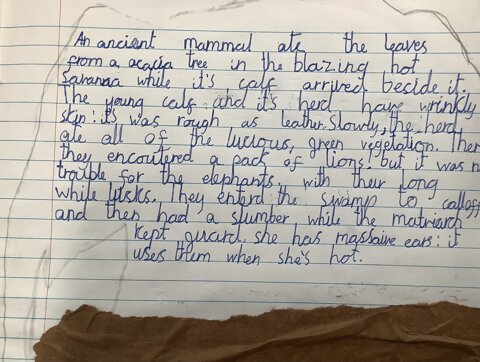 An ancient mammal ate the leaves
from a acacia tree in the blazing hot
Savanaa while it's calf arrived becide it.
The young calf and it's herd have wrinkly
skin: it's was rough as leather. Slowly, the herd
ate all of the lucious, green vegetation. Then
they encoutered a pack of lions: but it was n
trouble for the elephants, with their long
while tusks. They enterd the swamp to calloff
and then had a slumber while the matriarch
kept guard. she has massaive ears: it
uses them when she's hot.